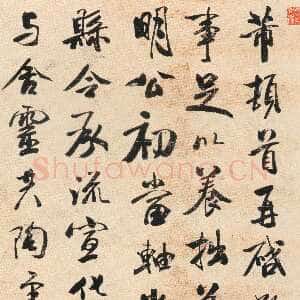 芾頓首再啓
事足以養拙苟
明公初當軸
縣令承流宣化
与含靈共陶至
Shufawang.CN